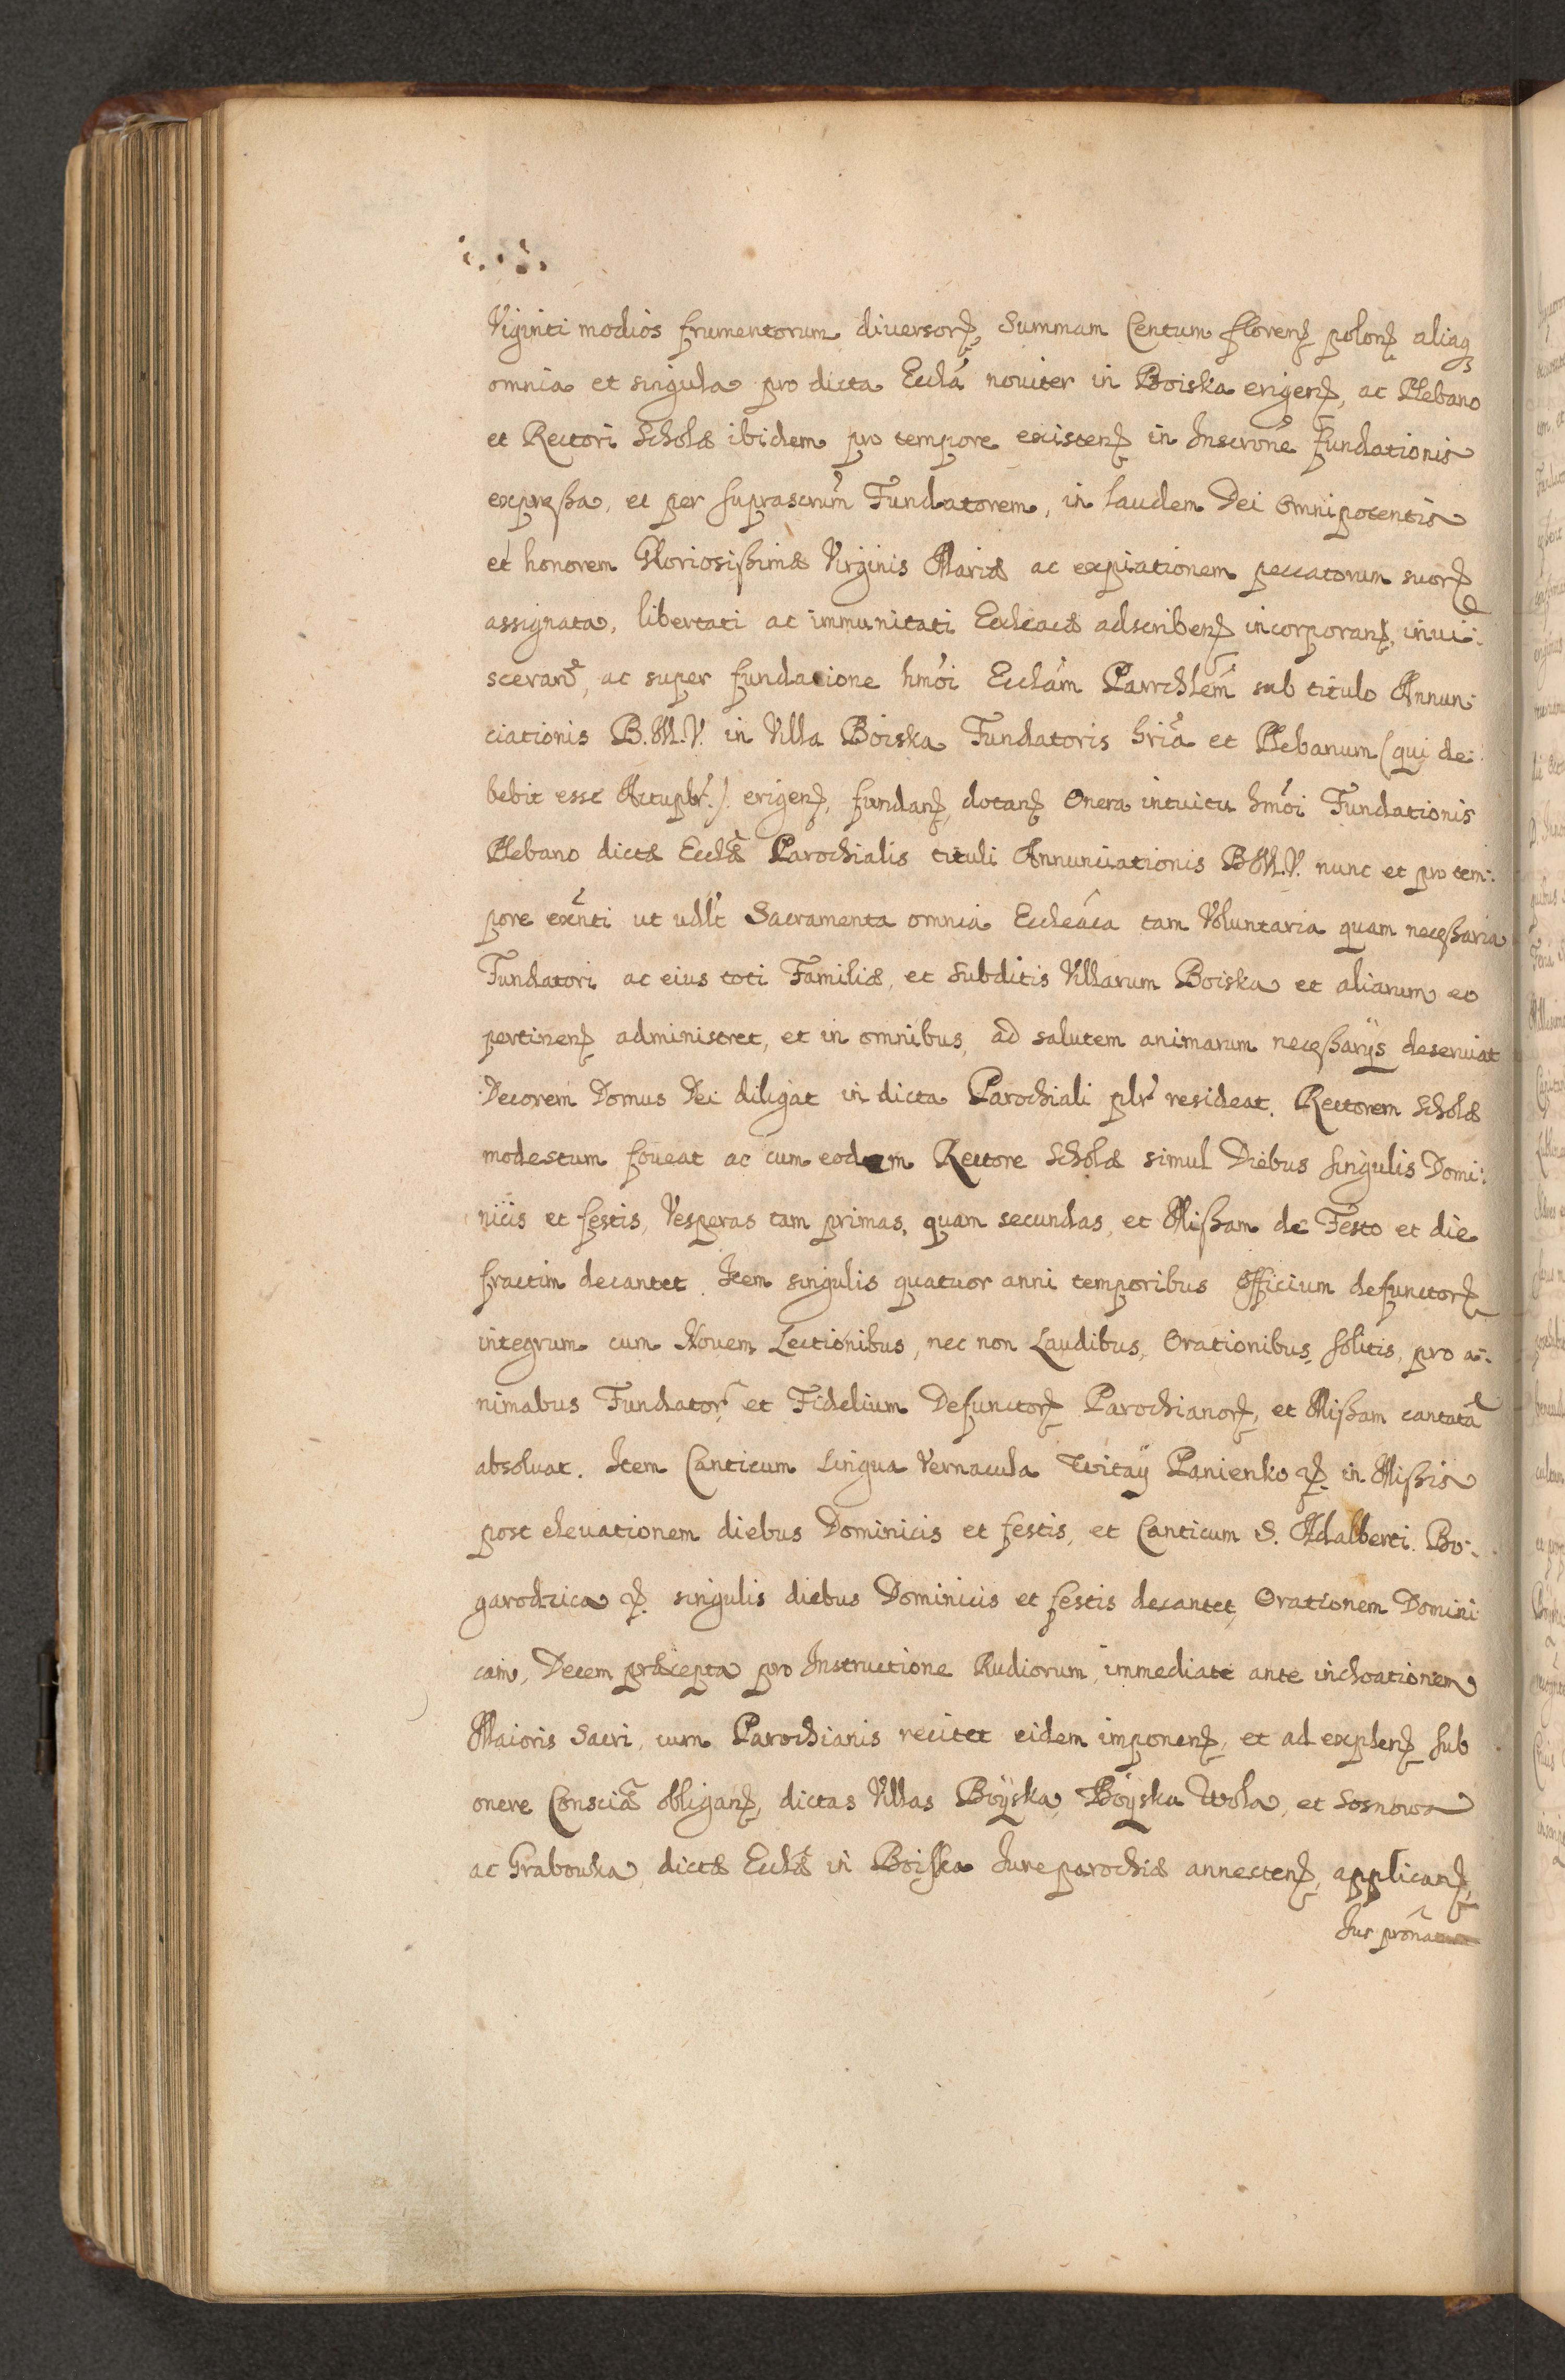 Viginti modios frumentorum diversorꝝ, Summam Centum florenꝝ polonꝝ aliaqꝫ
omnia et singula pro dicta Ecclã noviter in Boiska erigenꝝ, ac Plebano
et Rectori Scholæ ibidem pro tempore existenꝝ in Inscrone fundationis
expreßa, et per suprascrûm Fundatorem, in laudem Dei Omnipotentis
et honorem Gloriosißimæ Virginis Mariæ ac expiationem peccatorum suorꝝ
assignata, libertati ac immunitati Ecclcacæ adscribenꝝ incorporanꝝ, invi:
sceranꝝ, ac super fundatione hmoi Ecclam Parrchlem sub titulo Annun:
ciationis B.M.V. in Villa Boiska Fundatoris hria et Plebanum (qui de:
bebit esse Actupbr.) erigenꝝ, fundanꝝ, dotanꝝ Onera intuitu hmoi Fundationis
Plebano dictæ Ecclæ Parochialis tituli Annunciationis BM.V. nunc et pro tem:
pore exñti ut vdlt Sacramenta omnia Eccleaca tam Voluntaria quam neceßaria
Fundatori ac eius toti Familiæ, et Subditis Villarum Boiska et aliarum eo
pertinenꝝ administret, et in omnibus, ad salutem animarum neceßarÿs deserviat
Decorem Domus Dei diligat in dicta Parochiali plr resideat. Rectorem Scholæ
modestum foveat ac cum eodem Rectore Scholæ simul Diebus singulis Domi:
nicis et festis, Vesperas tam primas, quam secundas, et Mißam de Festo et die
fractim decantet. Item singulis quatuor anni temporibus Officium defunctorꝝ
integrum cum Novem Lectionibus, nec non Laudibus, Orationibus, solitis, pro a:
nimabus Fundatorꝝ et Fidelium Defunctorꝝ Parochianorꝝ, et Mißam cantatã
absolvat. Item Canticum Lingua Vernacula Witaÿ Panienko ꝝ. in Mißis
post elevationem diebus Dominicis et festis, et Canticum S. Adalberti. Bo:
garodzica ꝝ. singulis diebus Dominicis et festis decantet, Orationem Domini
cam, Decem præcepta pro Instructione Rudiorum, immediate ante inchoationem
Maioris Sacri, cum Parochianis recitet eidem imponenꝝ, et ad explenꝝ sub
onere Consciæ obliganꝝ, dictas Villas Boÿska, Boÿska Wola, et Sosnowa
ac Grabowka, dictæ Ecclæ in Boiska Iure parochiæ annectenꝝ, applicanꝝ,
Jus pronatus